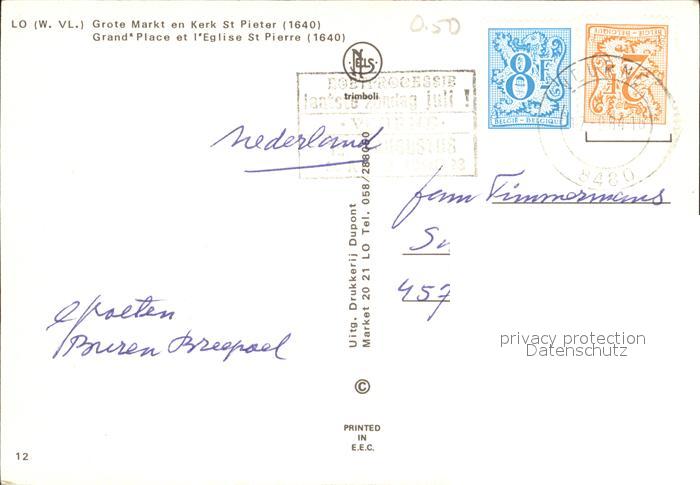 LO (W. VL.) Grote Markt en Kerk St Pieter (1640)
Grand'Place et l'Eglise St Pierre (1640)
0.50
NELS
trimboli
BOETPROCESSIE
laatste zondag juli !
8F
BELGIE - BELGIQUE
2F
BELGIE - BELGIQUE
VEURNE
8480
Nederland
fam Timmermans
457
Groeten
Buren
Uitg. Drukkerij Dupont
Market 20 21 LO Tel. 058/288080
privacy protection
Datenschutz
©
PRINTED
IN
E.E.C.
12